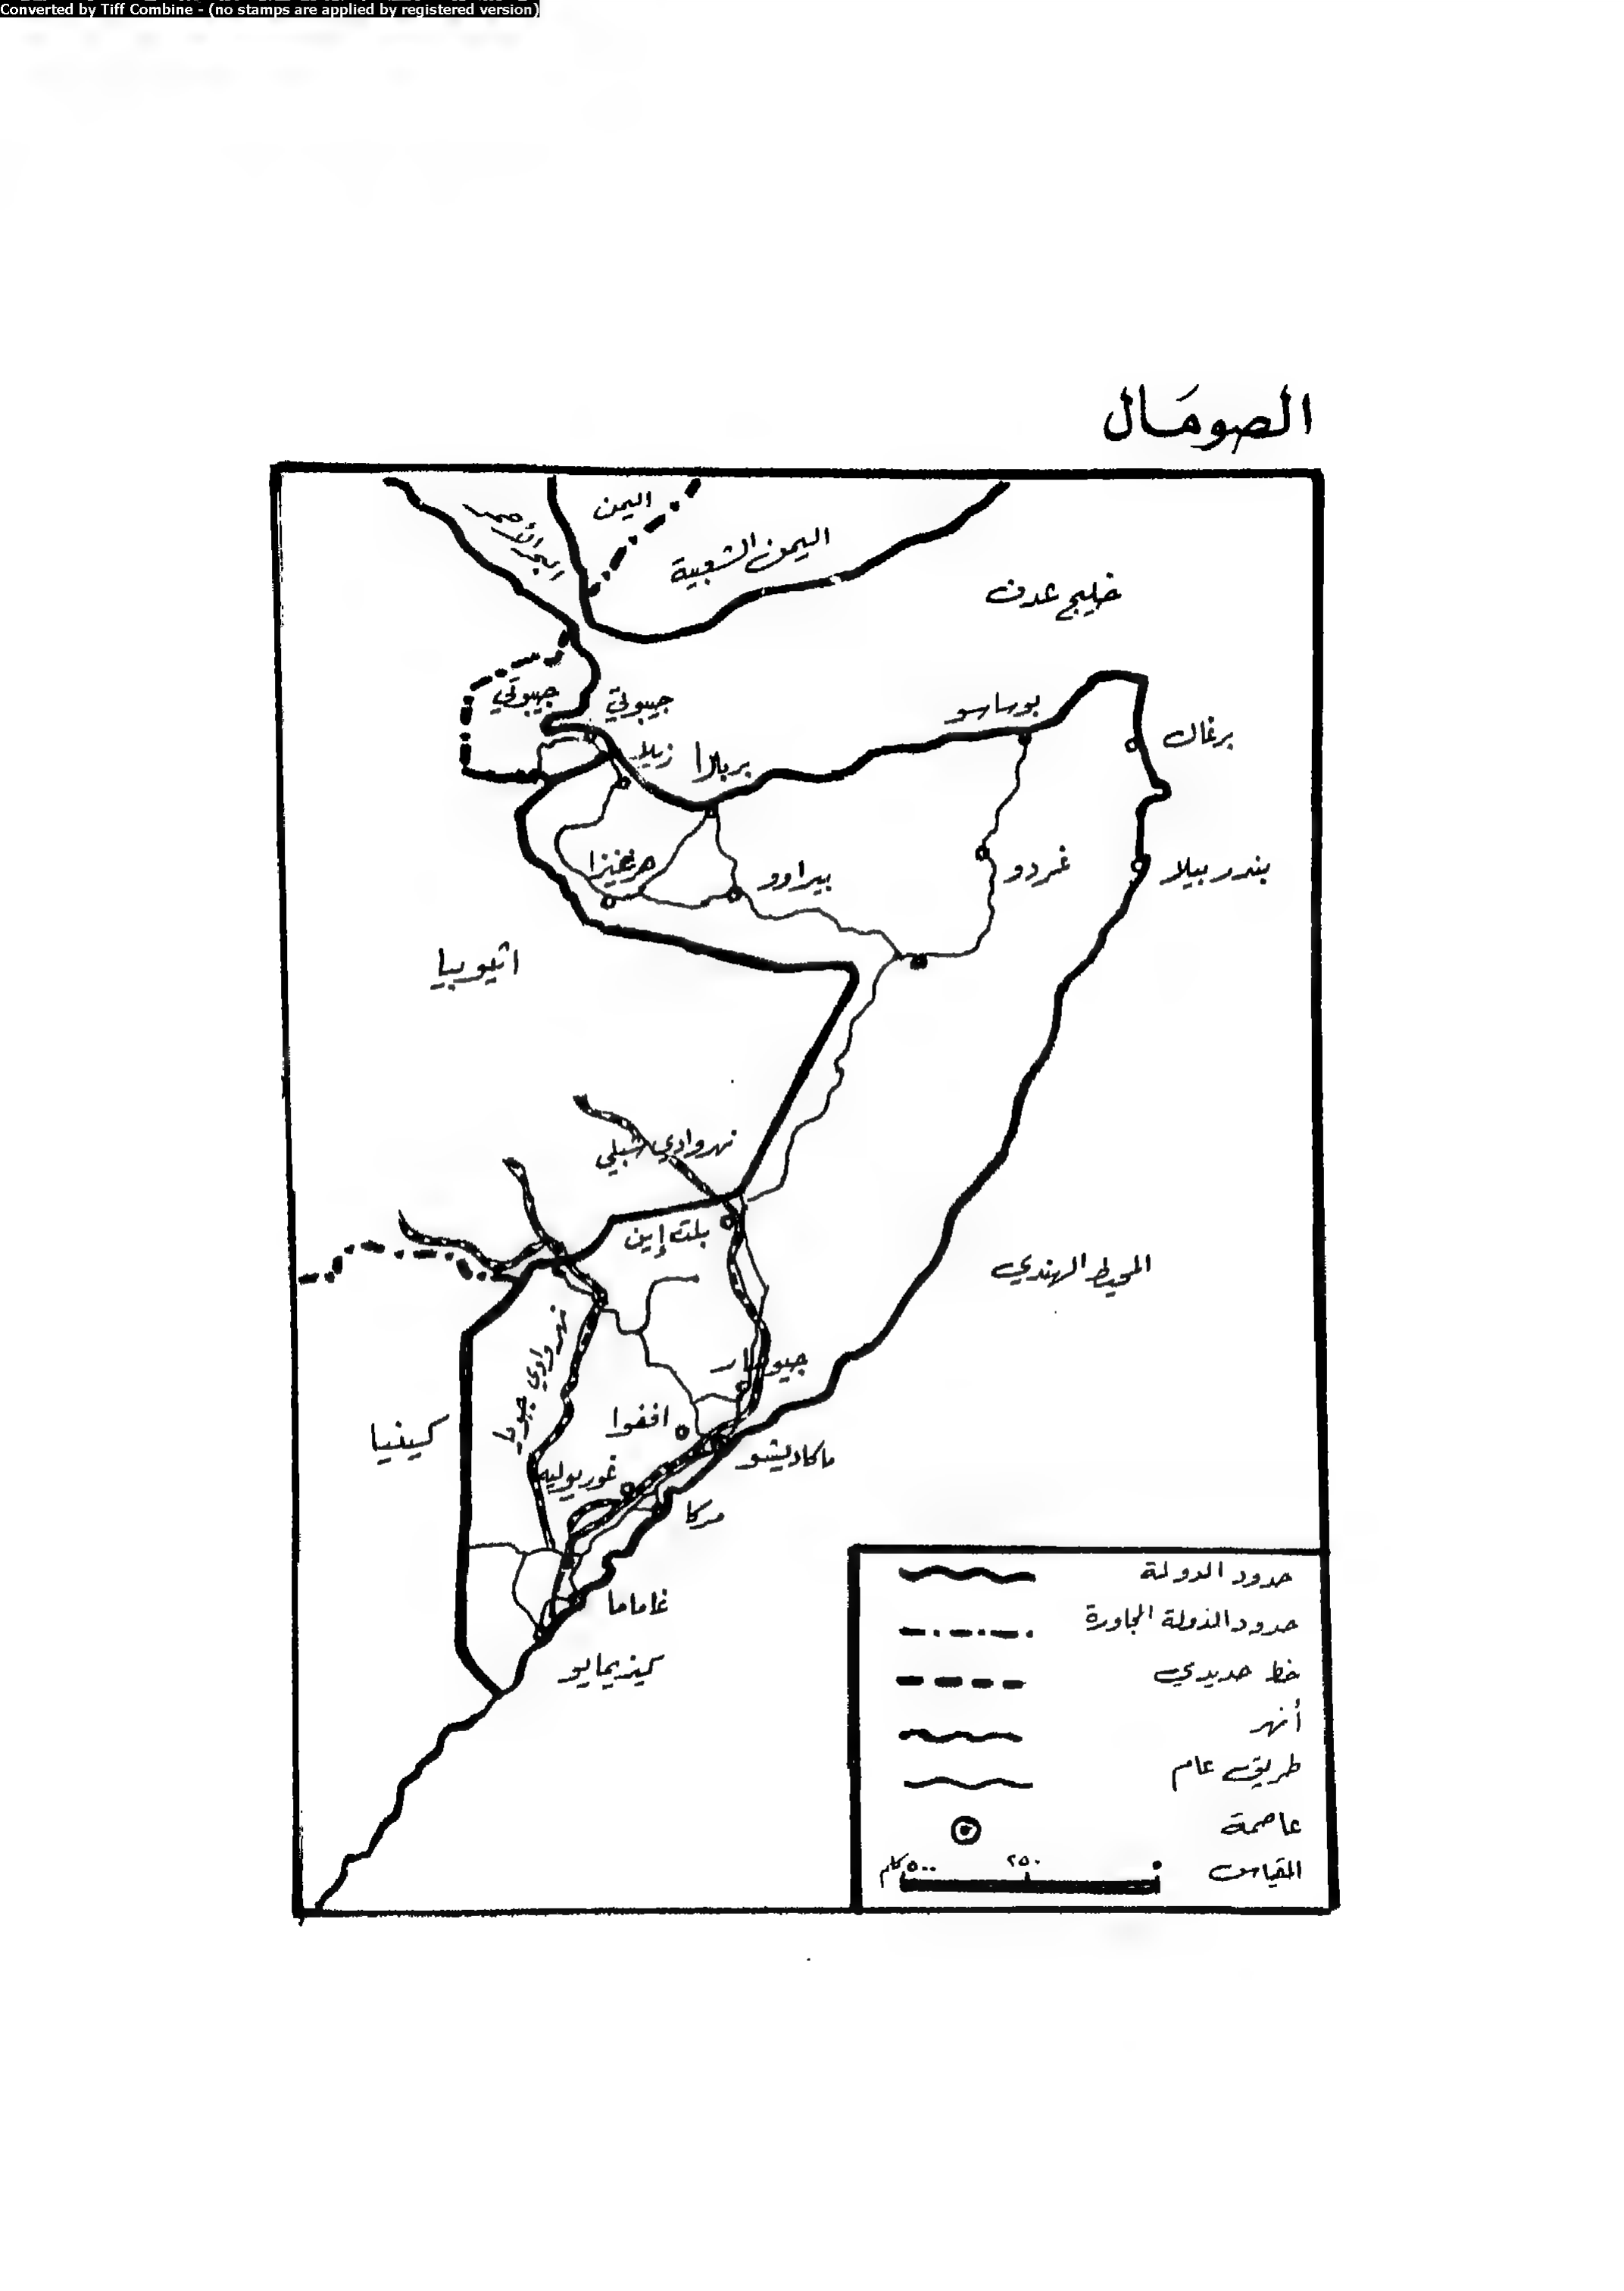 Converted by Tiff Combine - (no stamps are applied by registered version)
الصومَال
اليمن
البحر الأحمر
اليمن الشعبية
خليج عدن
جيبوتي
جيبوتي
بوساسو
برغال
زيلا
بربلاا
هرغيزا
بيراوو
غردو
بندر بيلا
اثيوبيا
نهر وادي شبلي
بلت إين
المحيط الهندي
نهر وادي جوبا
جيوهار
كينيا
افغوا
ماكاديشو
غوريوليه
مركا
غاماما
كيزيمايو
حدود الدولة
حدود الدولة المجاورة
خط حديدي
أنهر
طريق عام
عاصمة
المقياس
٠ ٢٥٠ ٥٠٠ كلم